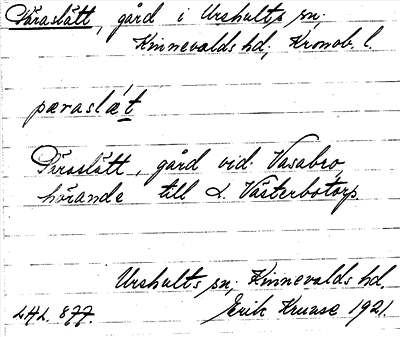 Päraslätt, gård i Urshults sn.
Kinnevalds hd, Kronob. l.
pæraslæt
Päraslätt, gård vid Vasabro,
hörande till L. Västerbotorp.
Urshults sn, Kinnevalds hd.
877. Erik Kruuse 1921.